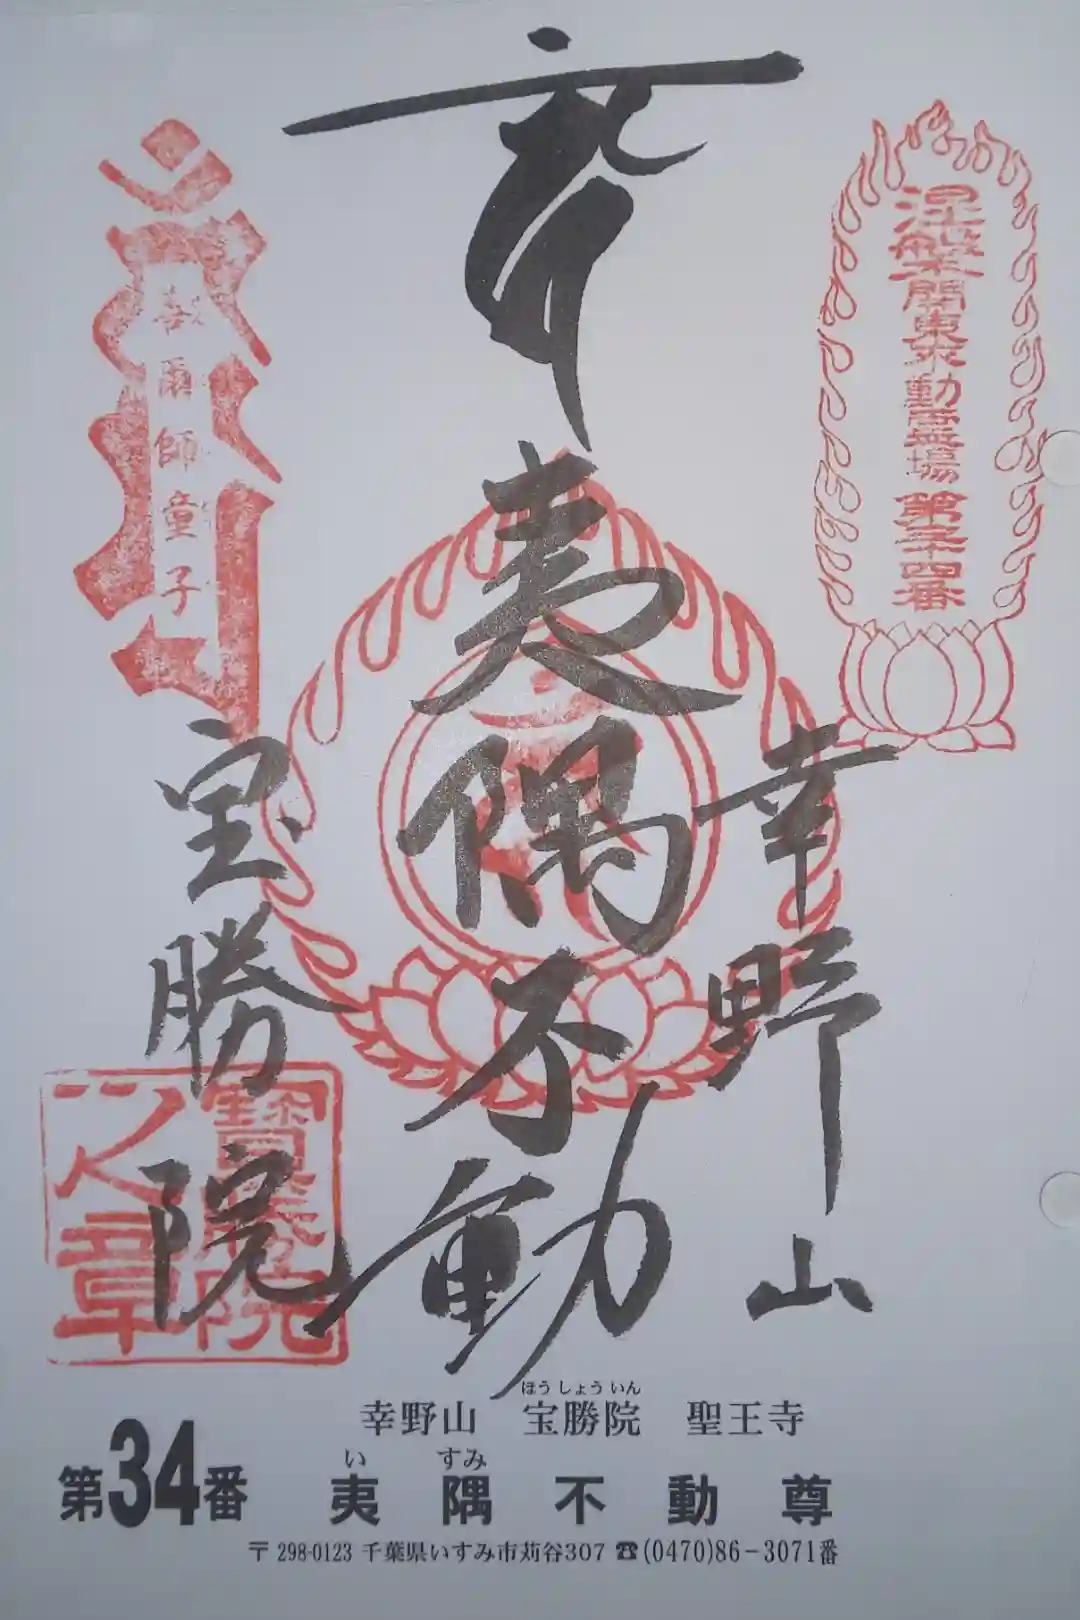 涅槃関東不動霊場第三十四番
奉
夷隅不動
幸野山
喜爾師童子
宝勝院
寶勝院
之章
幸野山 宝勝院 聖王寺
ほうしょういん
第34番 夷隅不動尊
い すみ
〒298-0123 千葉県いすみ市苅谷307 ☎(0470)86-3071番